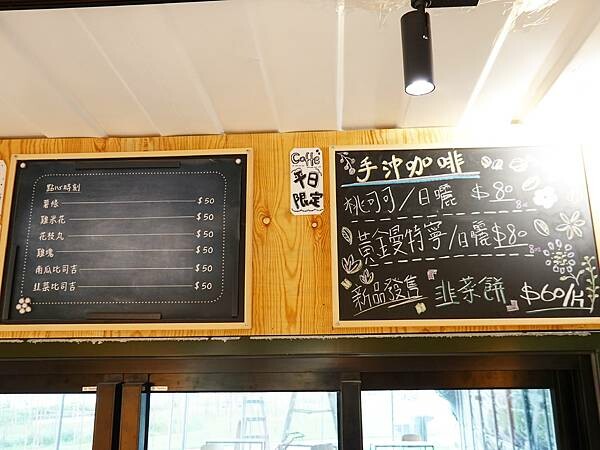 點心時刻
薯條 $50
雞米花 $50
花枝丸 $50
雞塊 $50
南瓜比司吉 $50
韭菜比司吉 $50
Caffe
平日
限定
手沖咖啡
桃可可/日曬 $80
黃金曼特寧/日曬 $80
新品發售 韭菜餅 $60/片